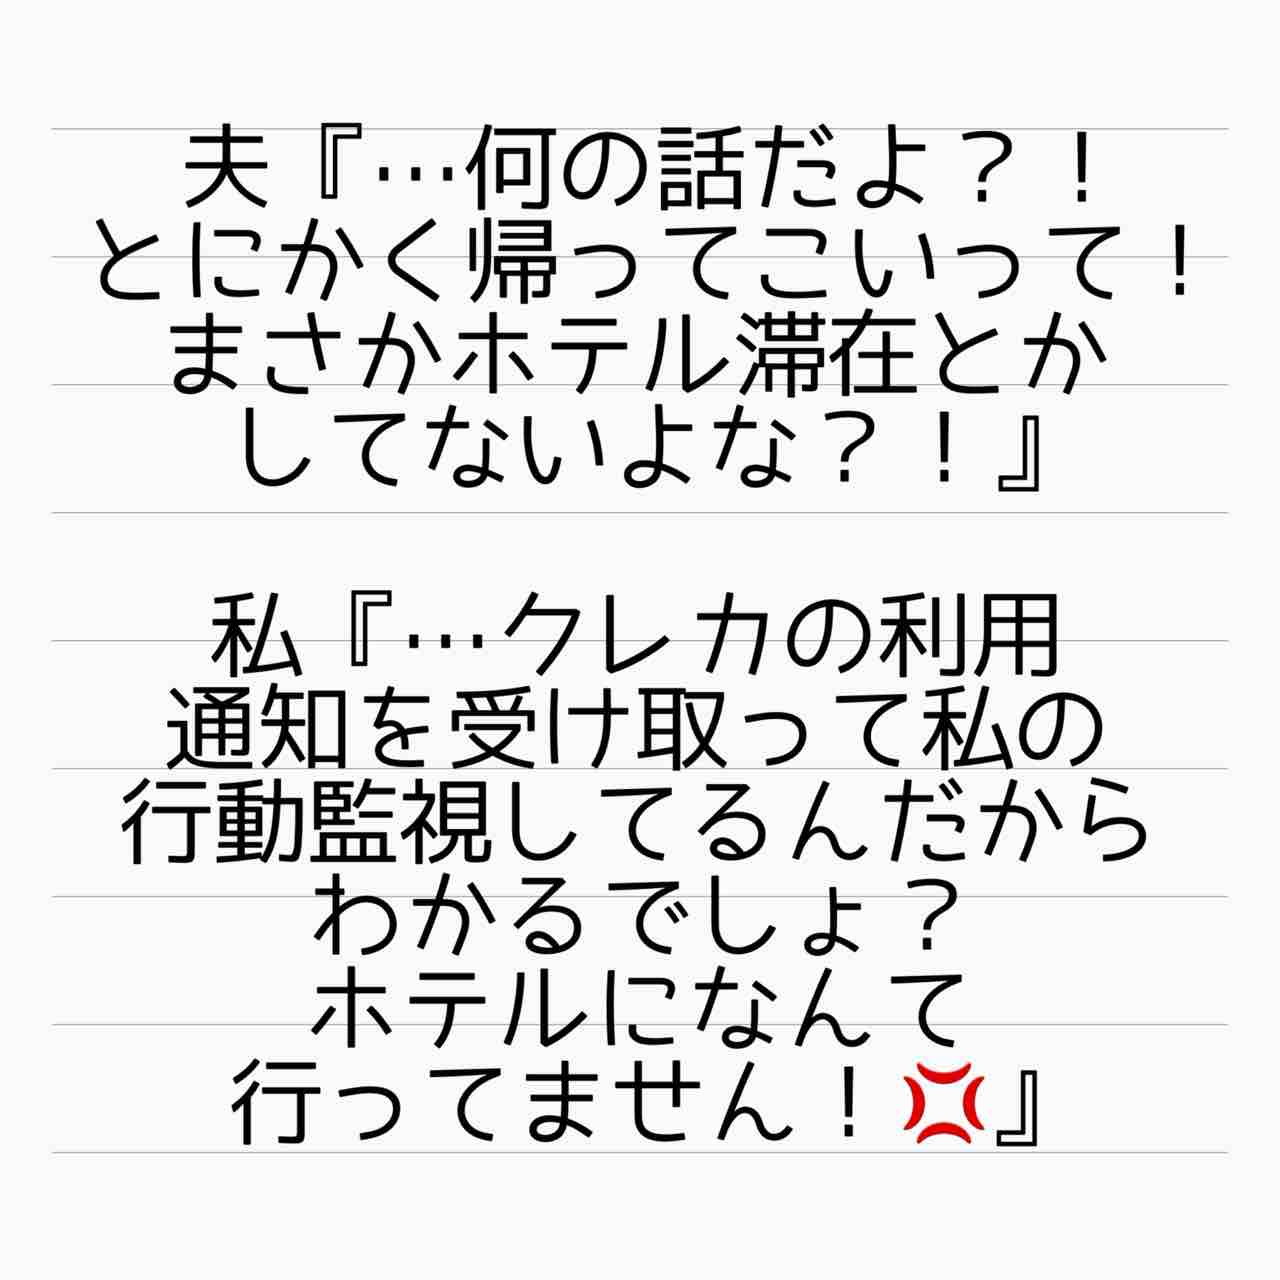 夫『…何の話だよ？！
とにかく帰ってこいって！
まさかホテル滞在とか
してないよな？！』
私『…クレカの利用
通知を受け取って私の
行動監視してるんだから
わかるでしょ？
ホテルになんて
行ってません！💢』